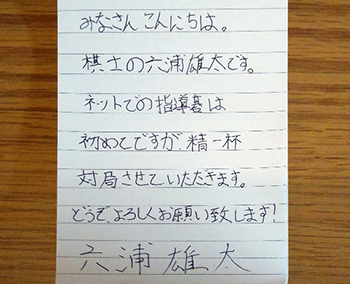 みなさん こんにちは。
棋士の六浦雄太です。
ネットでの指導碁は
初めてですが精一杯
対局させていただきます。
どうぞ、よろしくお願い致します!
六浦雄太